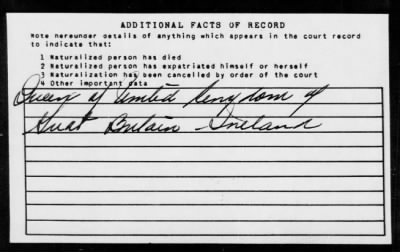 ADDITIONAL FACTS OF RECORD
Note hereunder details of anything which appears in the court record
to indicate that:
1 Naturalized person has died
2 Naturalized person has expatriated himself or herself
3 Naturalization has been cancelled by order of the court
4 Other important data
Queen of United Kingdom of
Great Britain Ireland